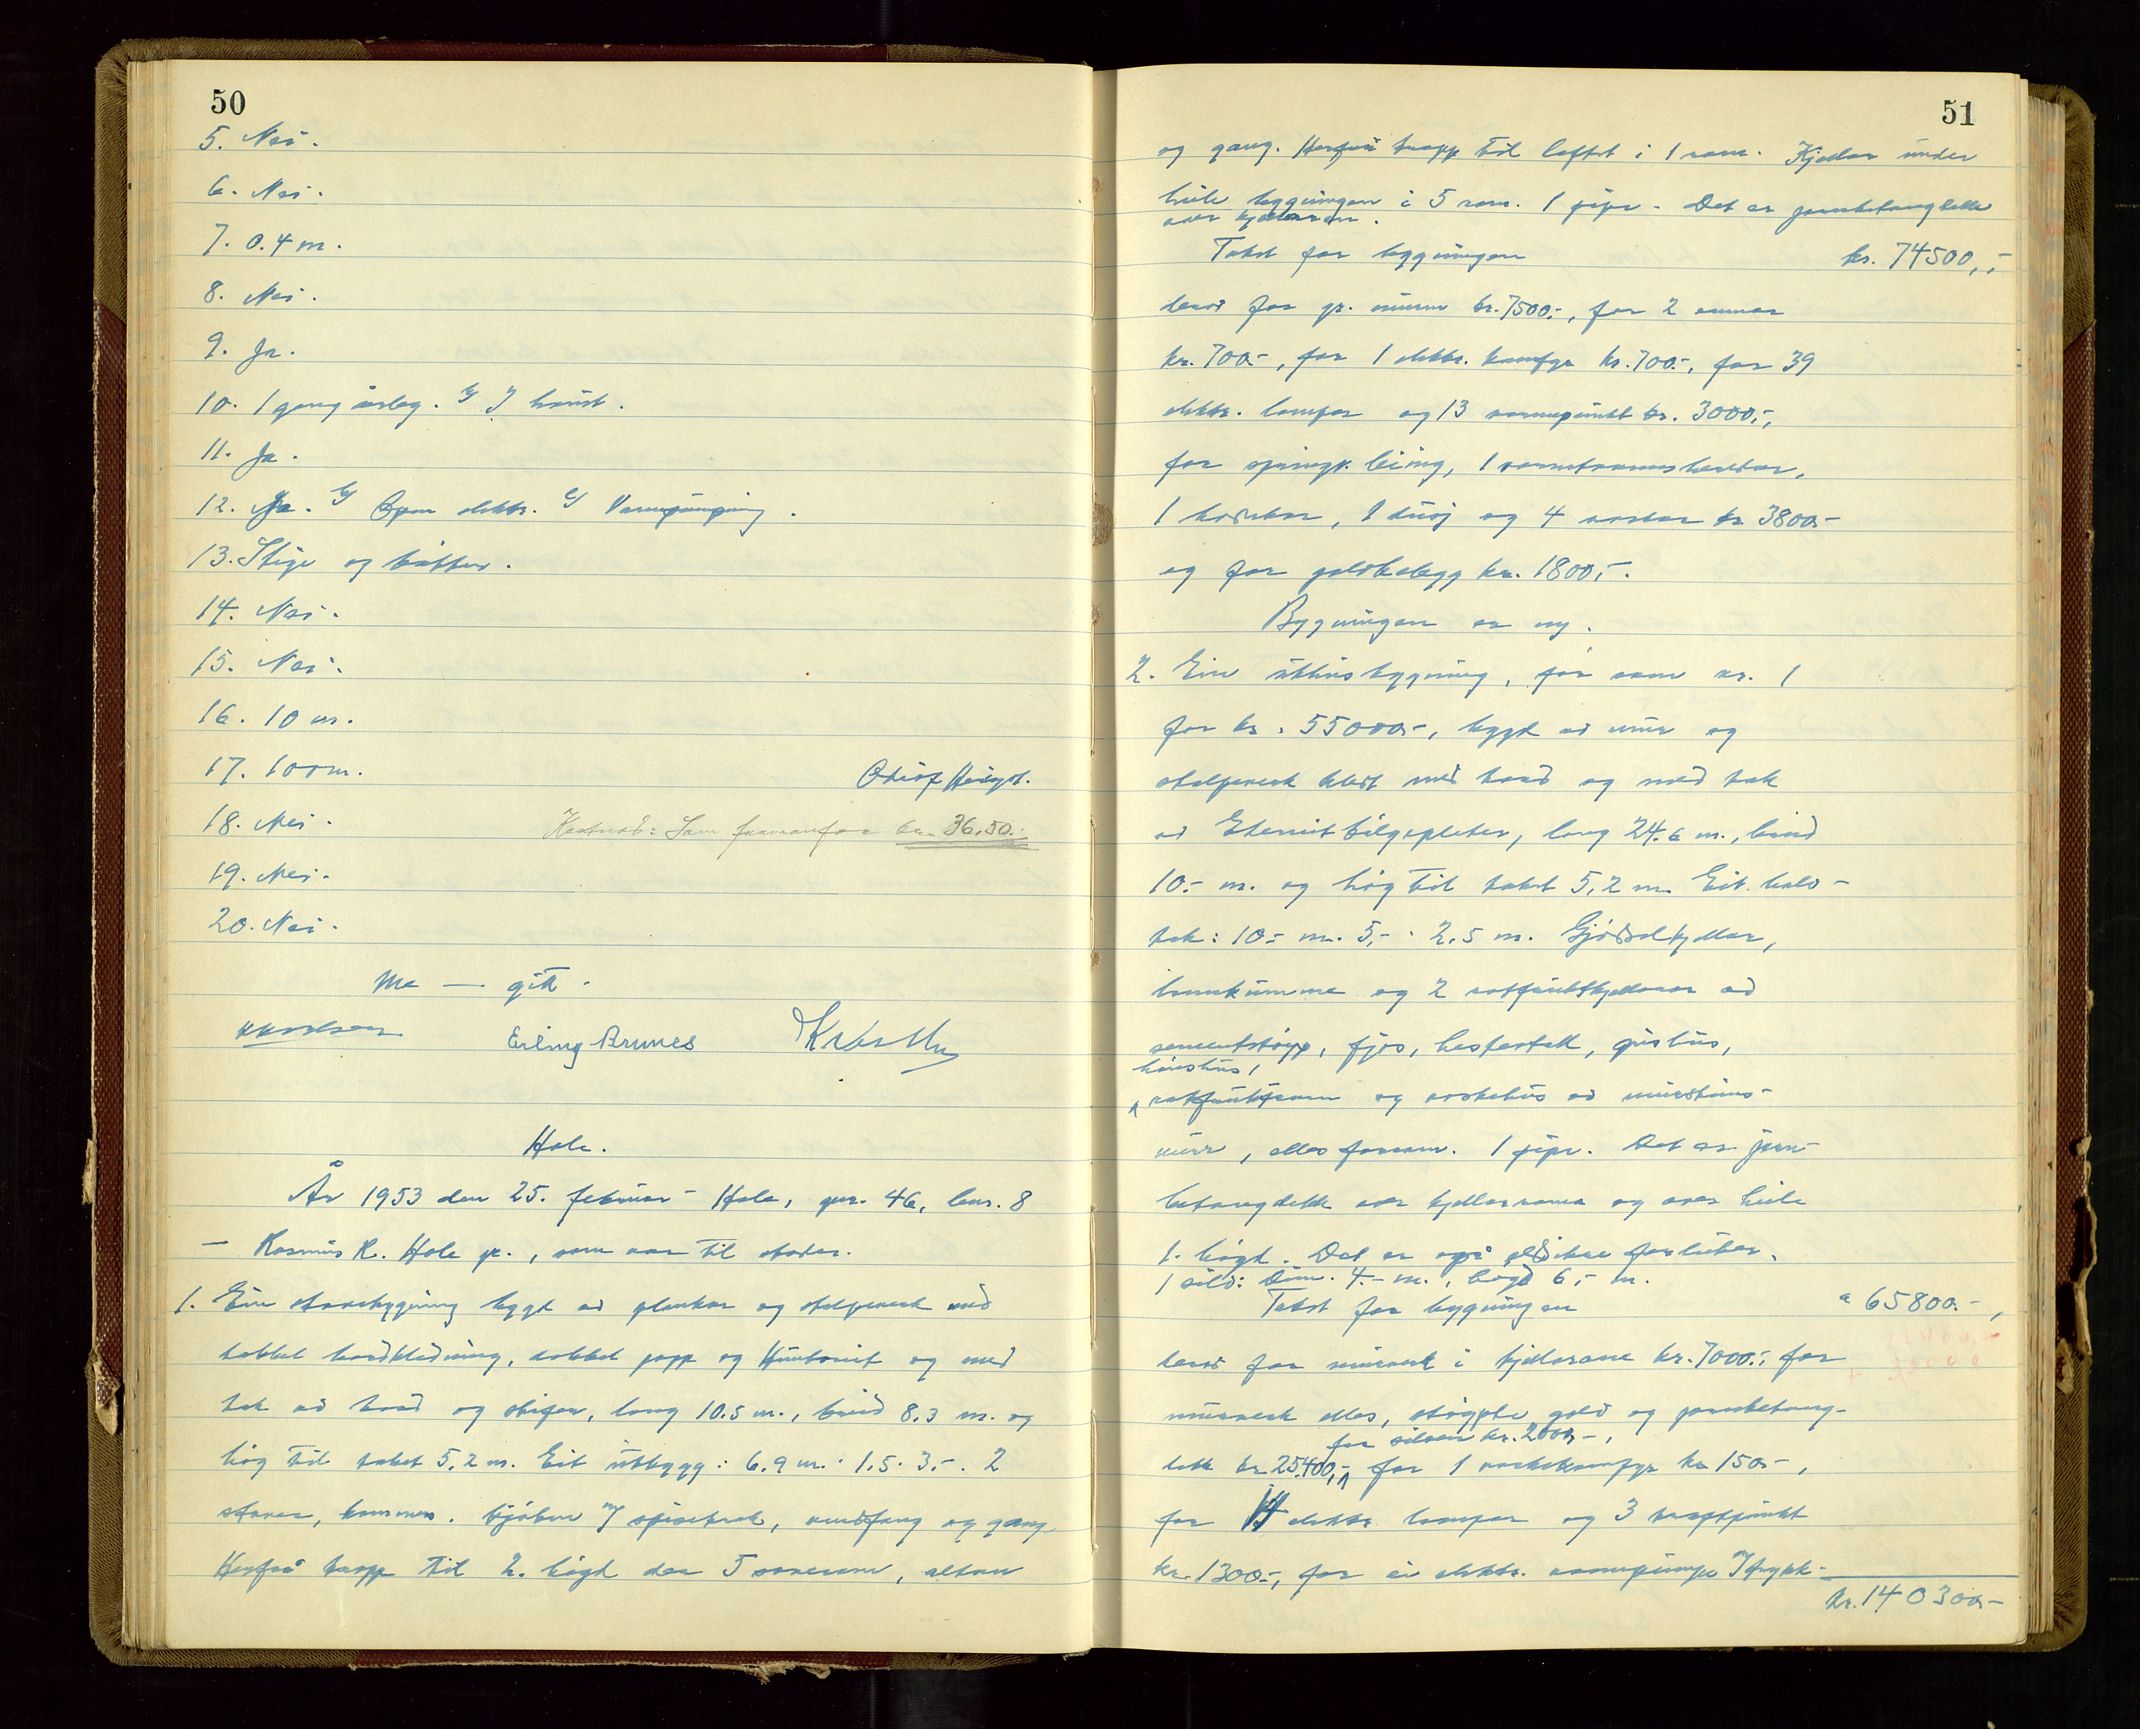 50
5. Nei.
6. Nei.
7. 0.4 m.
8. Nei.
9. Ja.
10. 1 gong årleg. b/ I haust.
11. Ja.
12. Ja. b/ Open elektr. c/ Vasspumping.
13. Stige og bøtter.
14. Nei.
15. Nei.
16. 10 m.
17. 100 m.
18. Nei.
Kostnad: Som framanfor kr. 36.50.-
19. Nei.
20. Nei.
Me — gitt.
Erling Brunes
Hole.
År 1953 den 25. februar - Hole, gnr. 46, bnr. 8
- Rasmus R. Hole gr., som var til stades.
1. Ein stovebygning bygd av plankar og stolpeverk med
dobbel bordkledning, dobbel papp og Huntonit og med
tak av bord og skifer, lang 10.5 m., breid 8.3 m. og
høg til taket 5.2 m. Eit utbygg: 6.9 m. · 1.5 · 3.-. 2
stover, kammers. kjøken m/ spisekrok, vindfang og gang.
Herfrå trapp til 2. høgd der 5 soverom, altan
51
og gang. Herfrå trapp til loftet i 1 rom. Kjellar under
heile bygningen i 5 rom. 1 pipe - Det er jernbetongdekke
over kjellaren.
Takst for bygningen kr. 74500,-
derav for gr. muren kr. 7500.-, for 2 omnar
kr. 700.-, for 1 elektr. komfyr kr. 700.-, for 39
elektr. lampar og 13 varmepunkt kr. 3000.-,
for springv. leiing, 1 varmtvannsberedar,
1 badekar, 1 dusj og 4 vaskar kr 3800.-
og for golvbelegg kr. 1800.-.
Bygningen er ny.
2. Ein uthusbygning, før som nr. 1
for kr. 55000.-, bygd av mur og
stolpeverk kledt med bord og med tak
av Eternit bølgeplater, lang 24.6 m., breid
10.- m. og høg til taket 5,2 m. Eit halv-
tak: 10.- m. 5.- · 2.5 m. Gjødselkjellar,
landkumme og 2 rotfruktkjellarar av
sementstøyp, fjøs, hestestall, grishus,
hønshus,
rotfruktrom og vaskehus av murstens-
mur, elles forrom. 1 pipe. Det er jern-
betongdekk over kjellarromma og over heile
1. høgd. Det er også eldsikre forluker.
1 silo: Diam. 4.- m., høgd 6.- m.
Takst for bygningen " 65800.-,
derav for murverk i kjellarane kr. 7000.-, for
murverk elles, støypte golv og jernbetong-
for siloen kr. 2000.-,
dekk kr. 25400,- for 1 vaskekomfyr kr 150.-,
for 14 elektr. lampar og 3 kraftpunkt
kr. 1300.-, for ei elektr. vasspumpe m/ trykk-
kr. 140300.-